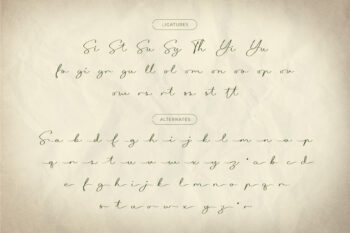 LIGATURES
Si St Su Sy Th Yi Yu
fo gi gr gu ll ol om on oo op ou
ow rs rt os st tt
ALTERNATES
S a b d f g h i j k l m n a p
q r s t u v w x y z a b c d
e f g h i j k l m n o p q r
s t u v w x y z r